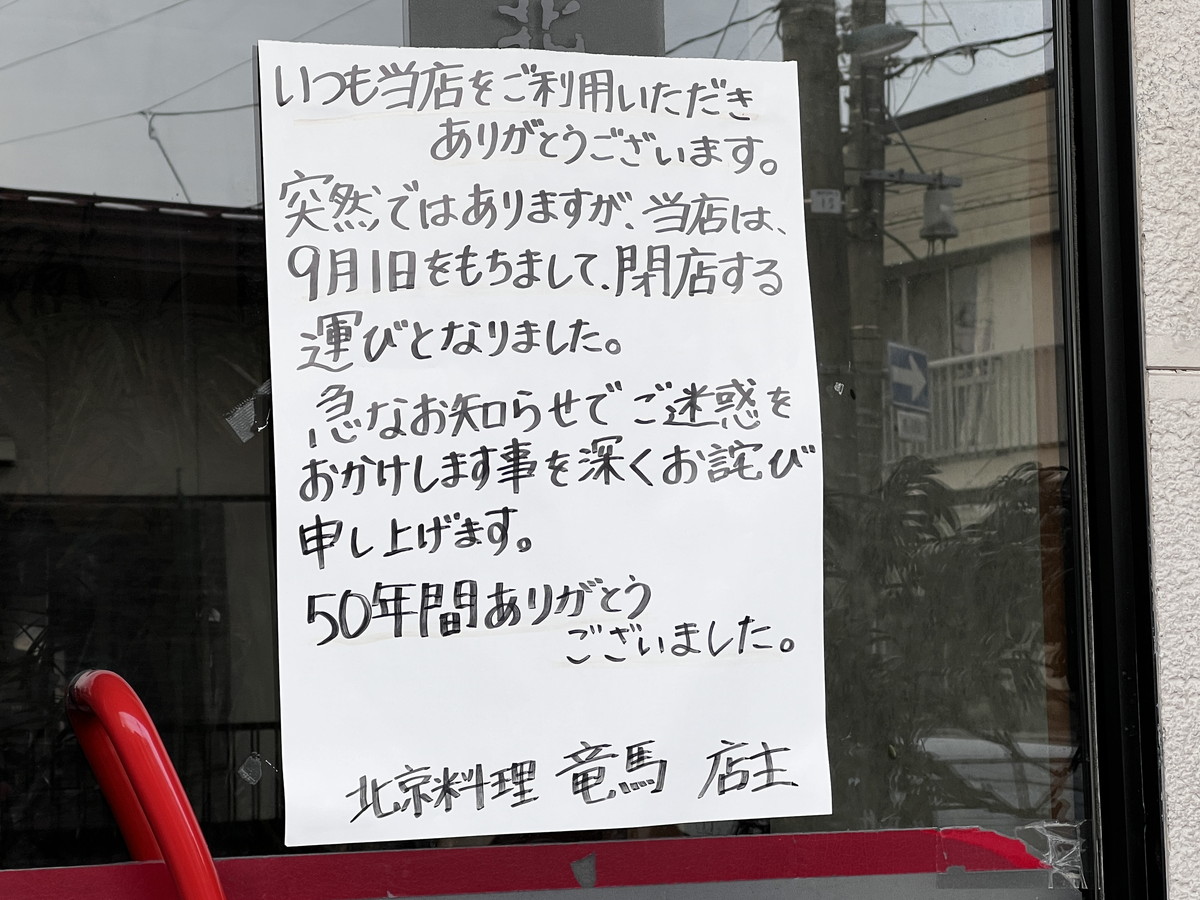 北
いつも当店をご利用いただき
ありがとうございます。
突然ではありますが、当店は、
9月1日をもちまして、閉店する
運びとなりました。
急なお知らせでご迷惑を
おかけします事を深くお詫び
申し上げます。
50年間ありがとう
ございました。
北京料理 竜馬 店主
15